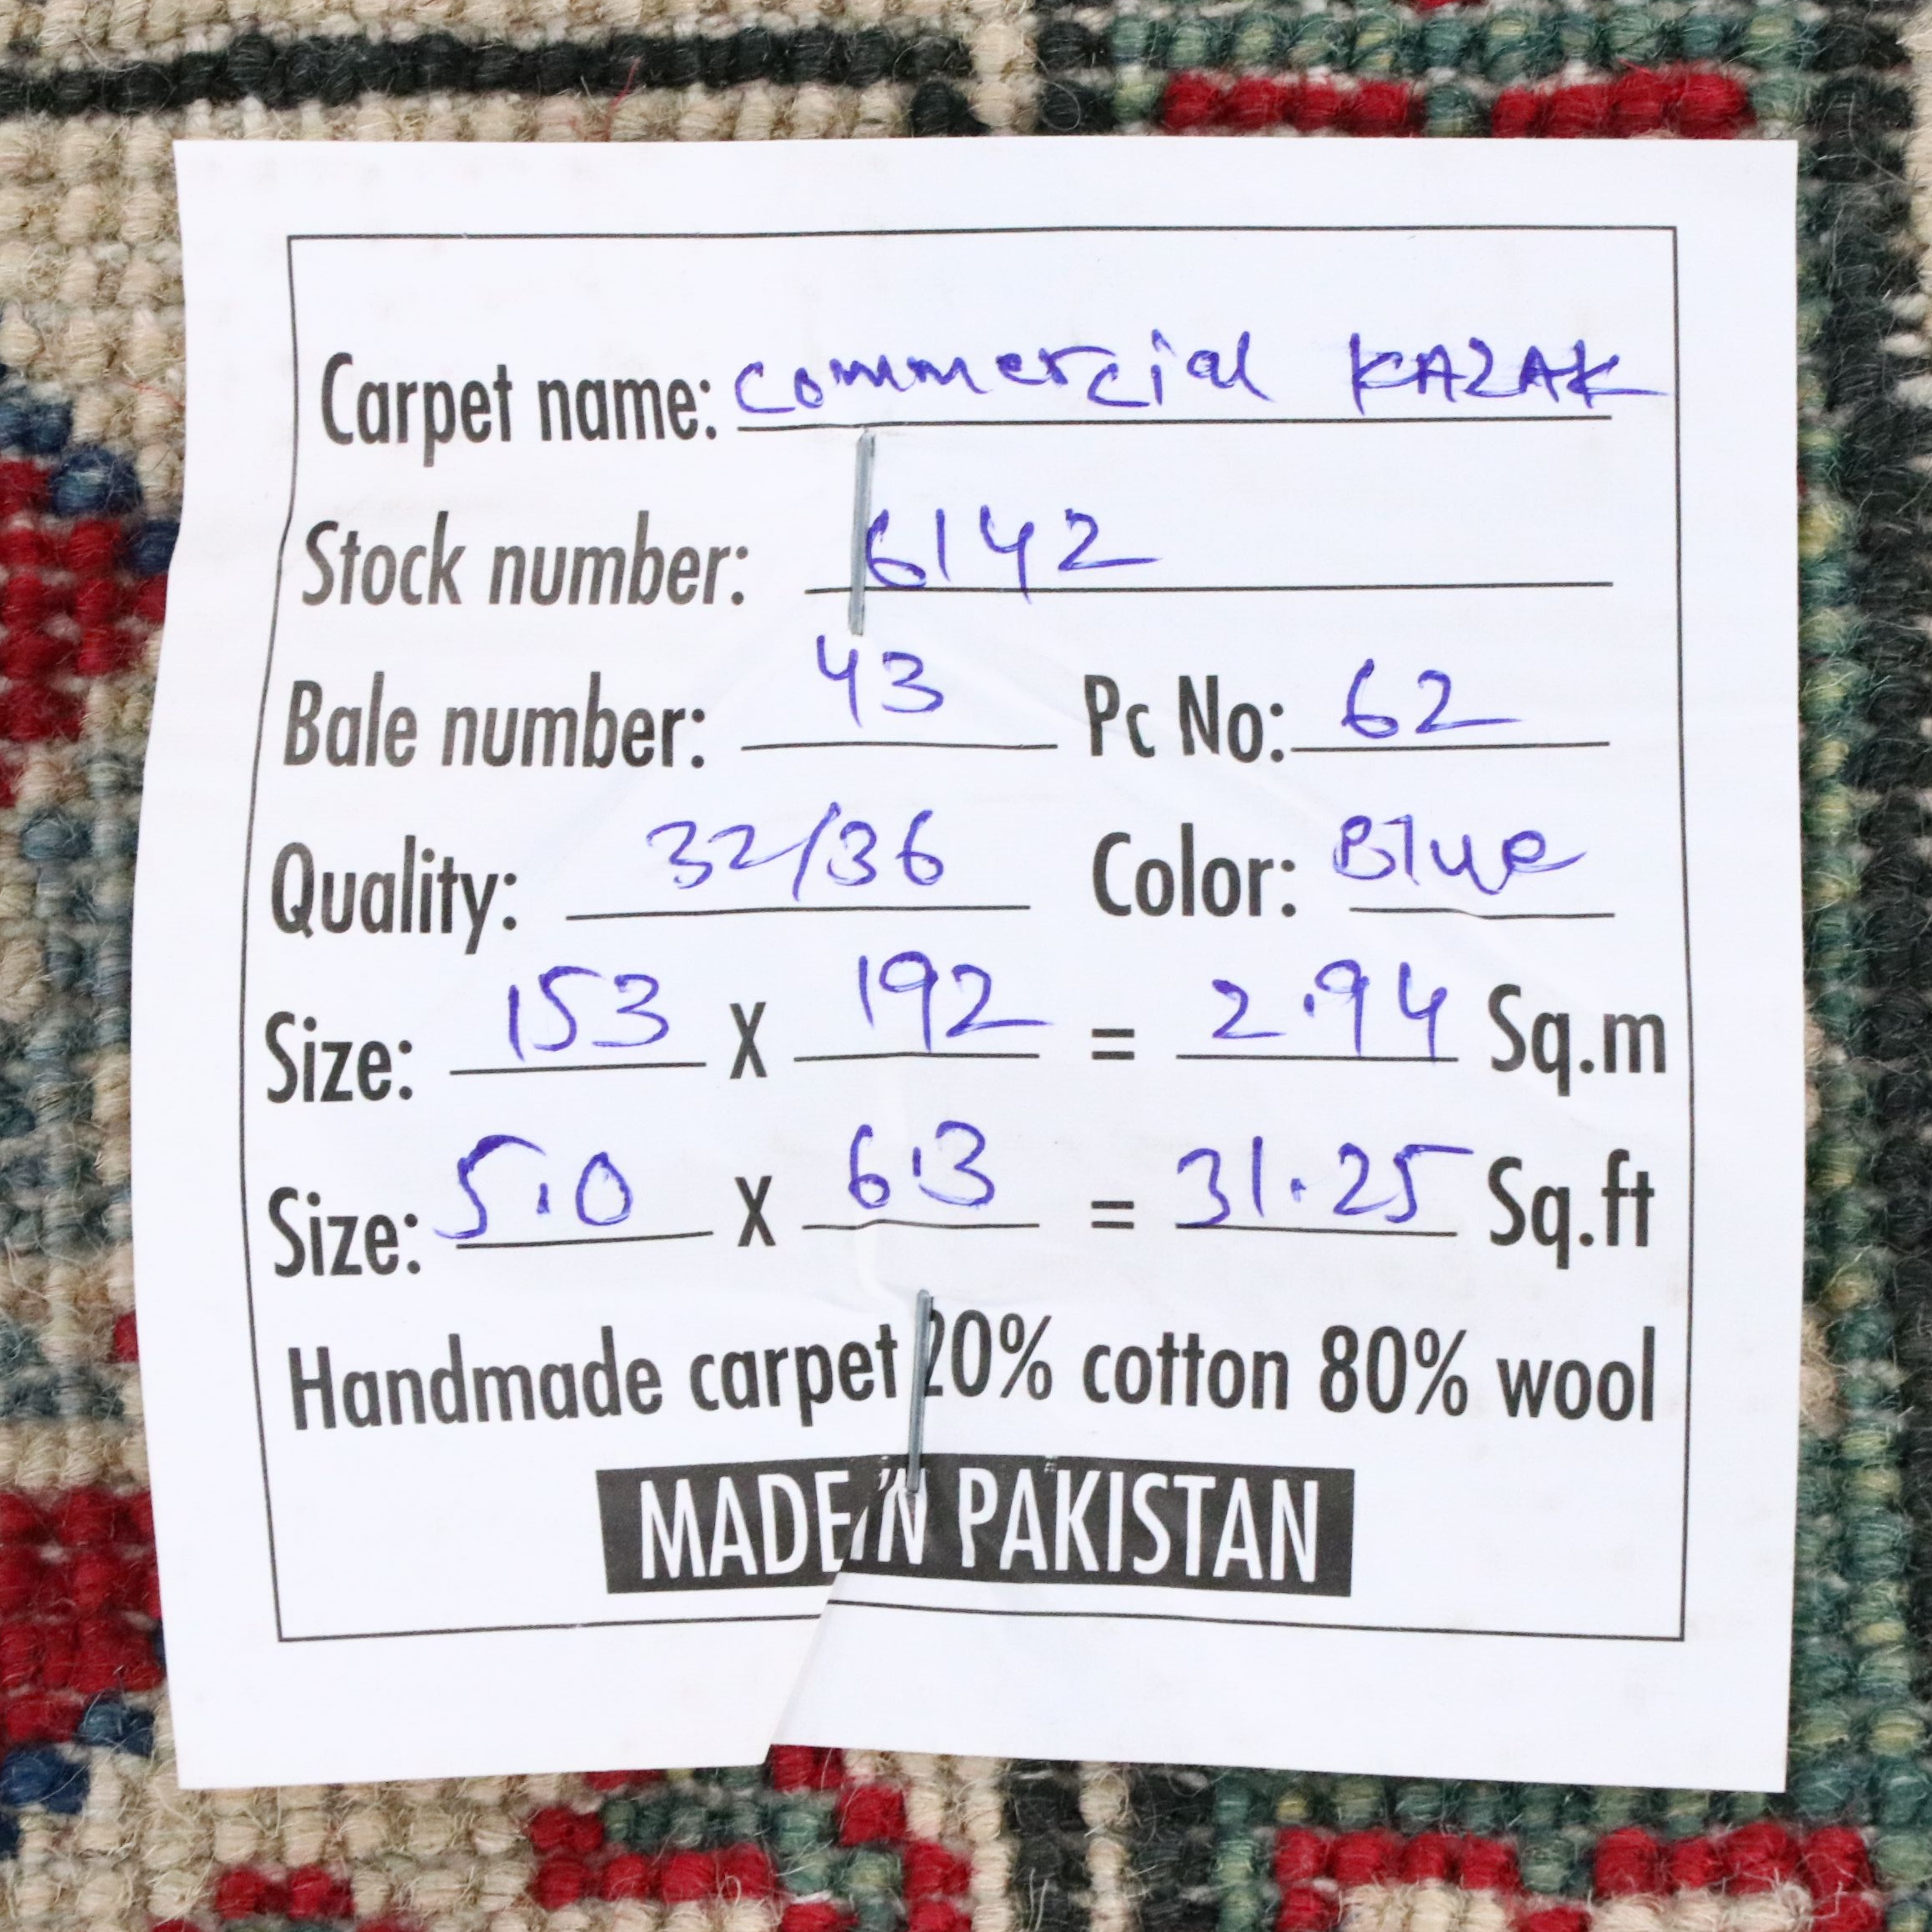 Carpet name: Commercial KAZAK
Stock number: 6142
Bale number: 43 Pc No: 62
Quality: 32/36 Color: Blue
Size: 153 X 192 = 2.94 Sq.m
Size: 5.0 X 6.3 = 31.25 Sq.ft
Handmade carpet 20% cotton 80% wool
MADE IN PAKISTAN